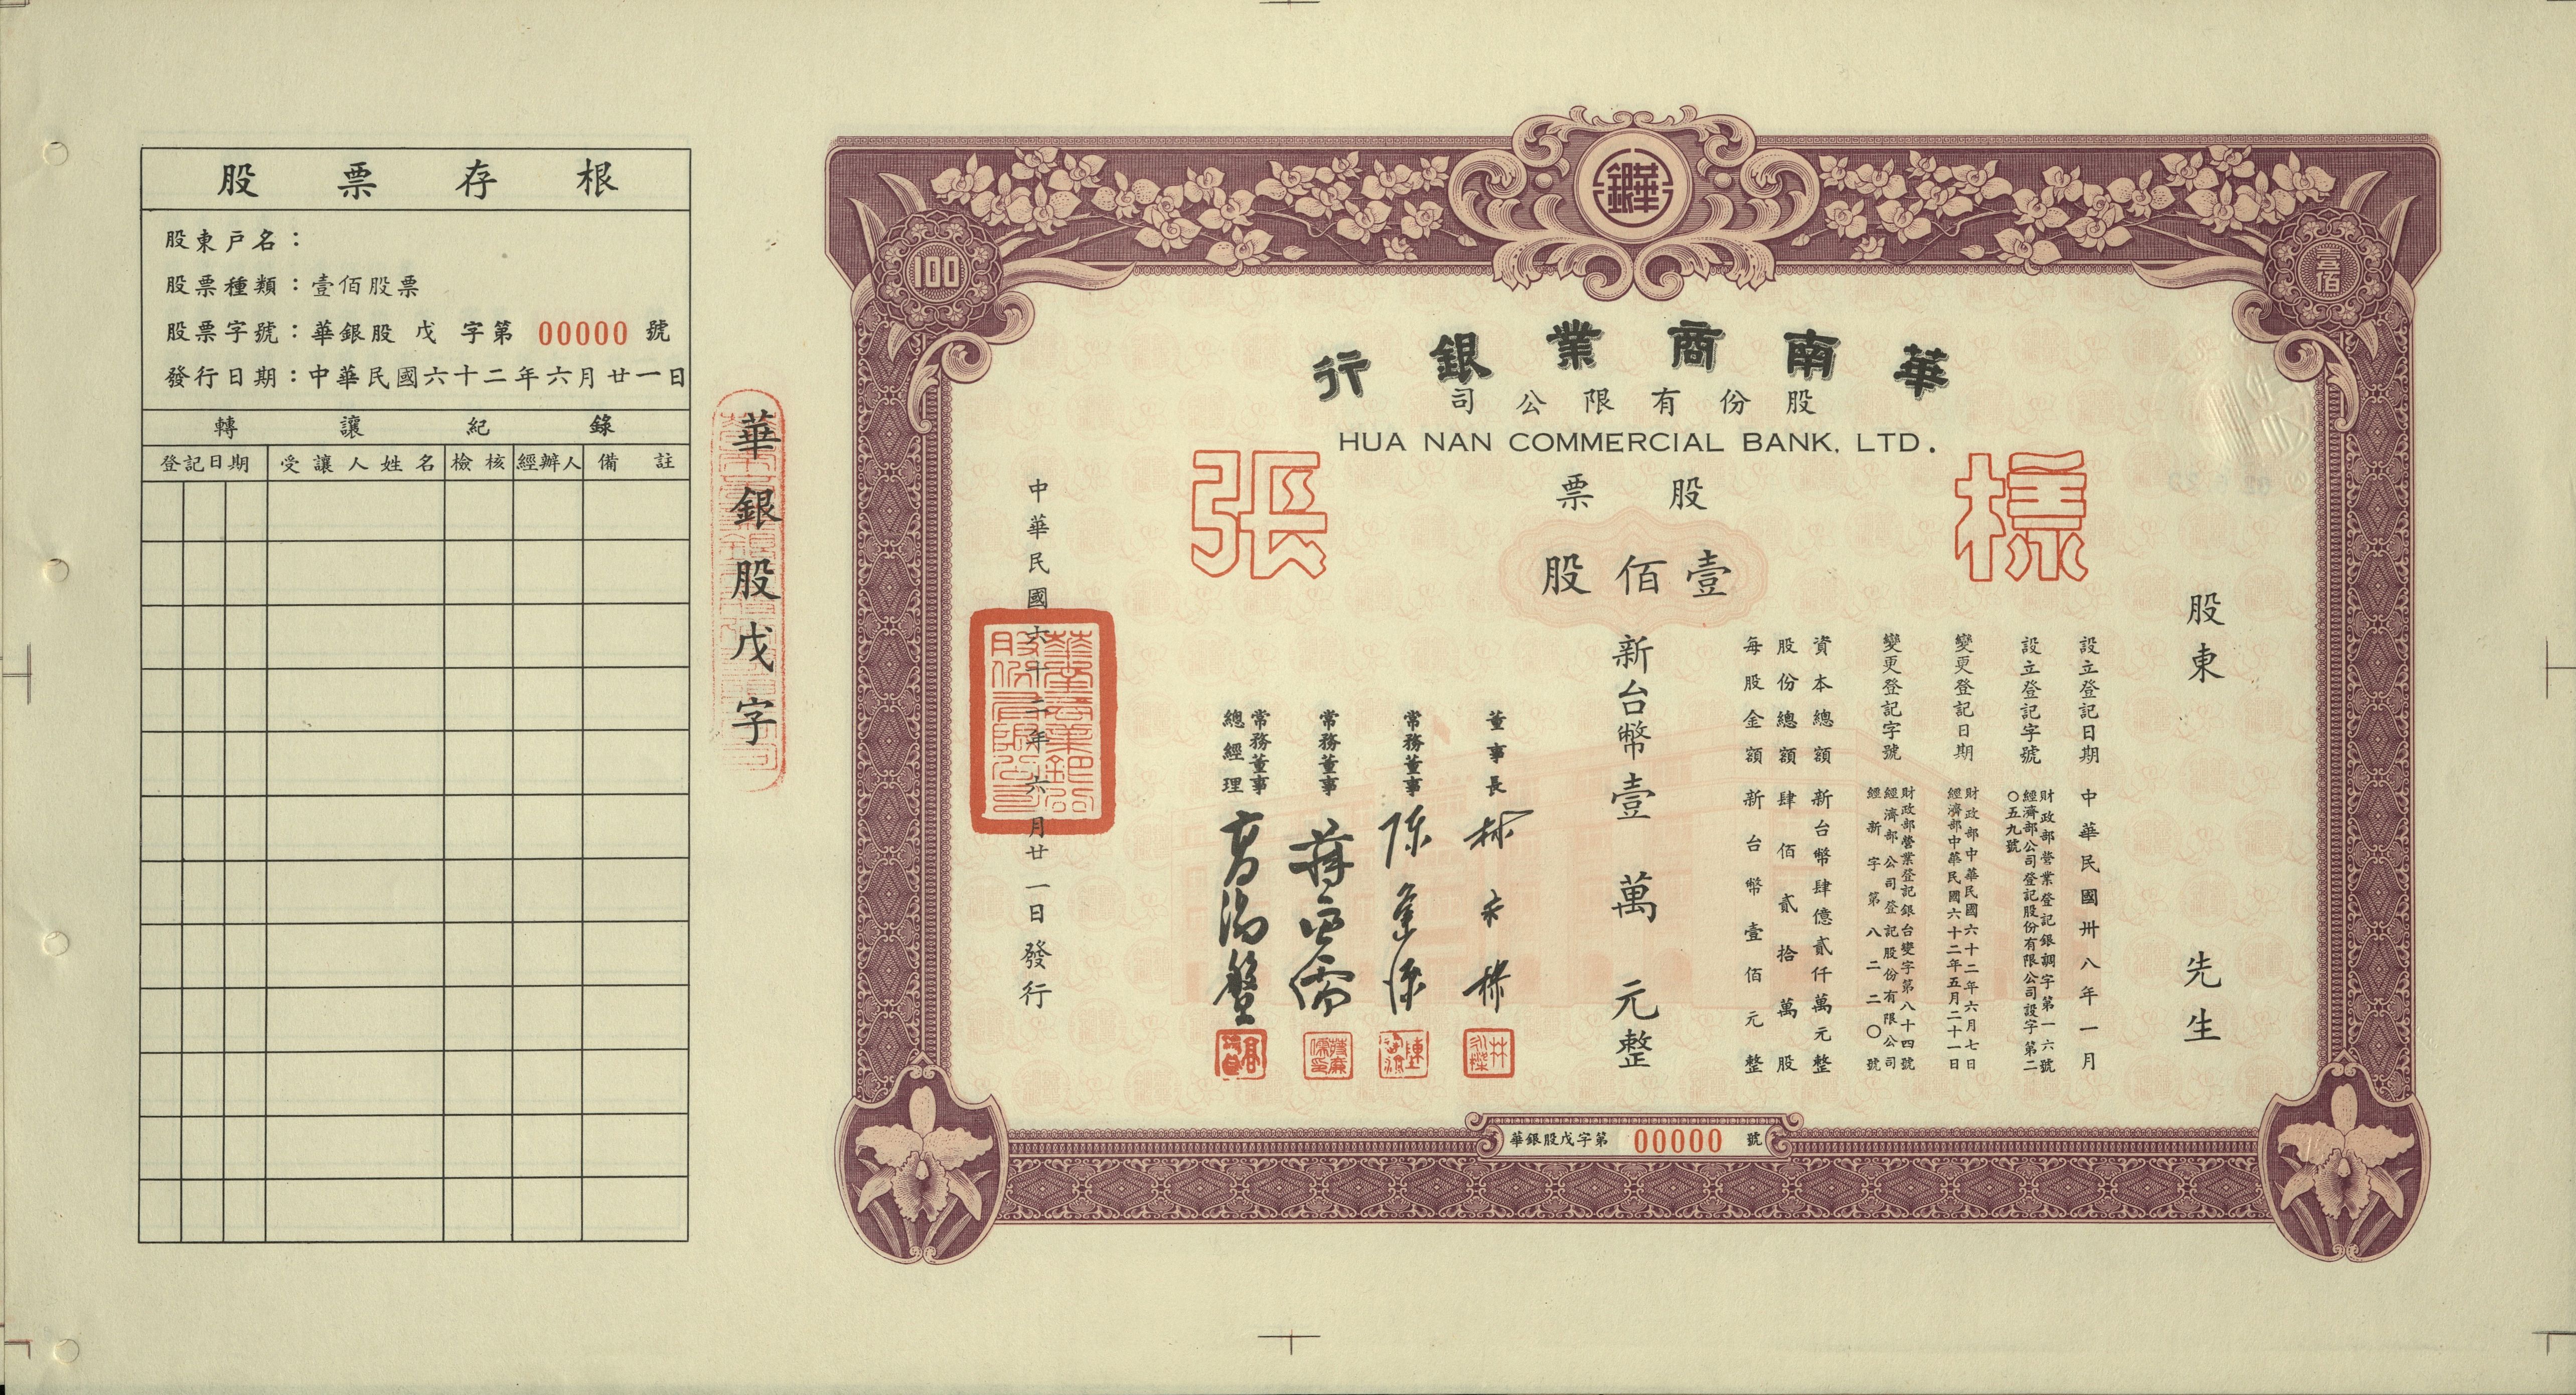 股票存根
股東戶名：
股票種類：壹佰股票
股票字號：華銀股 戊 字第 00000 號
發行日期：中華民國六十二年六月廿一日
轉讓紀錄
登記日期 受讓人姓名 檢核 經辦人 備註
華銀股戊字
100
壹佰
華銀
華南商業銀行
股份有限公司
HUA NAN COMMERCIAL BANK, LTD.
樣張
股票
壹佰股
股東 先生
設立登記日期 中華民國卅八年一月
設立登記字號 財政部營業登記銀調字第一六號
經濟部公司登記股份有限公司設字第二
〇五九號
變更登記日期 財政部中華民國六十二年六月七日
經濟部中華民國六十二年五月二十一日
變更登記字號 財政部營業登記銀台變字第八十四號
經濟部公司登記股份有限公司
經新字第八二二〇號
資本總額 新台幣肆億貳仟萬元整
股份總額 肆佰貳拾萬股
每股金額 新台幣壹佰元整
新台幣壹萬元整
董事長
常務董事
常務董事
常務董事
總經理
中華民國六十二年六月廿一日發行
華銀股戊字第 00000 號